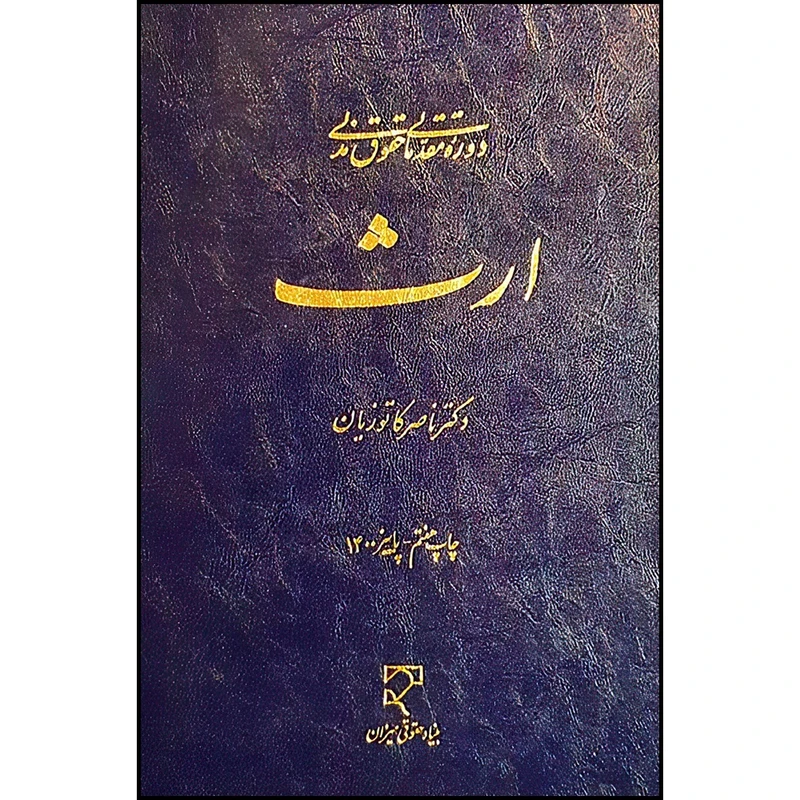 دوره مقدماتی حقوق مدنی
ارث
دکتر ناصر کاتوزیان
چاپ هفتم - پاییز ۱۴۰۰
بنیاد حقوقی میزان